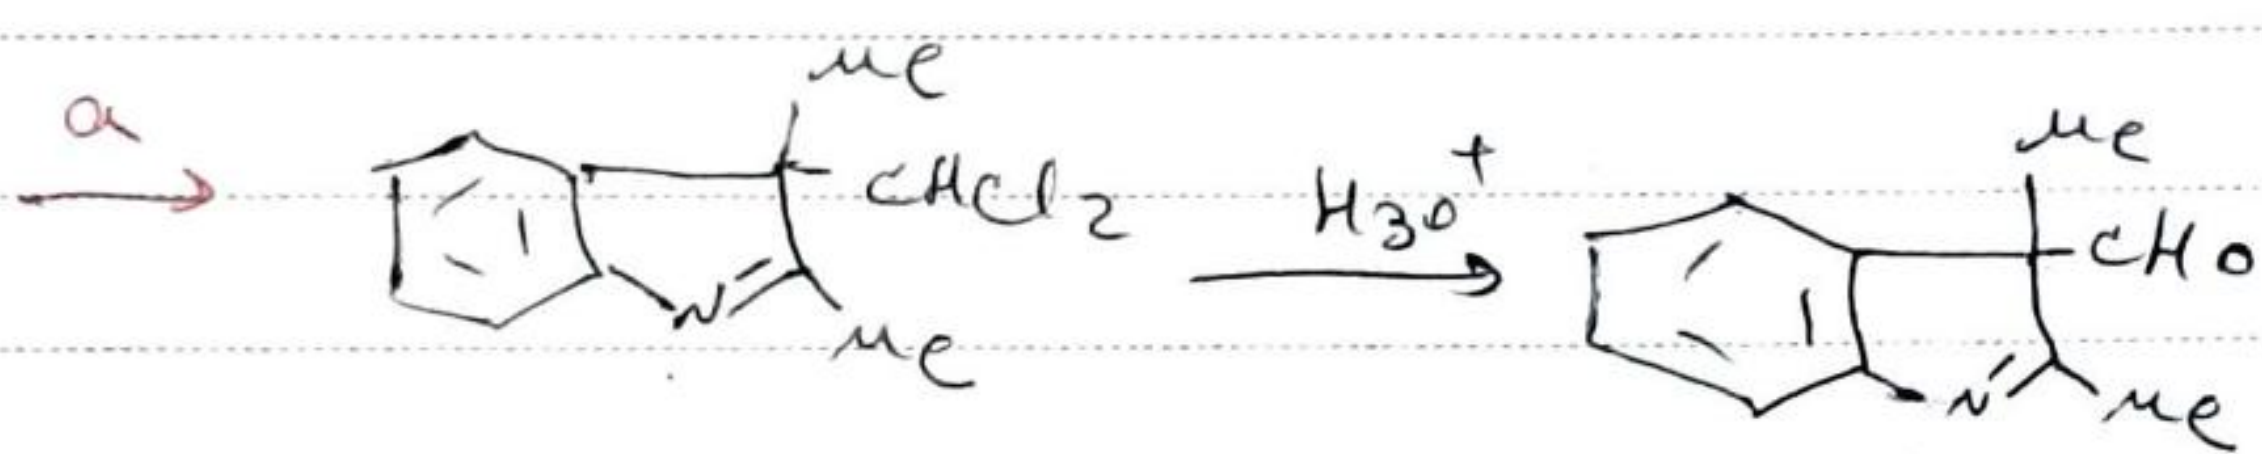 a
Me
CHCl2
N
Me
H3O+
Me
CHO
N
Me